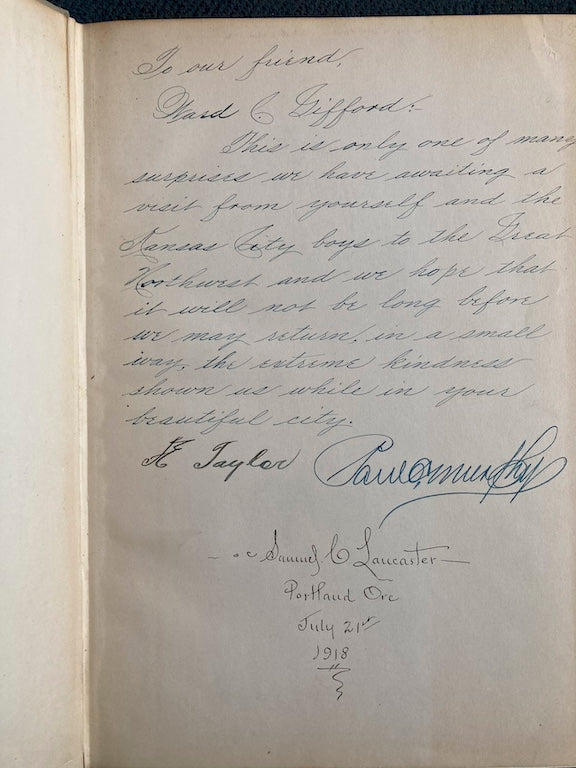 To our friend,
Ward C. Gifford:-
This is only one of many
surprises we have awaiting a
visit from yourself and the
Kansas City boys to the Great
Northwest and we hope that
it will not be long before
we may return, in a small
way, the extreme kindness
shown us while in your
beautiful city.
Taylor Paul Murphy
Samuel C Lancaster
Portland Ore
July 21st
1918